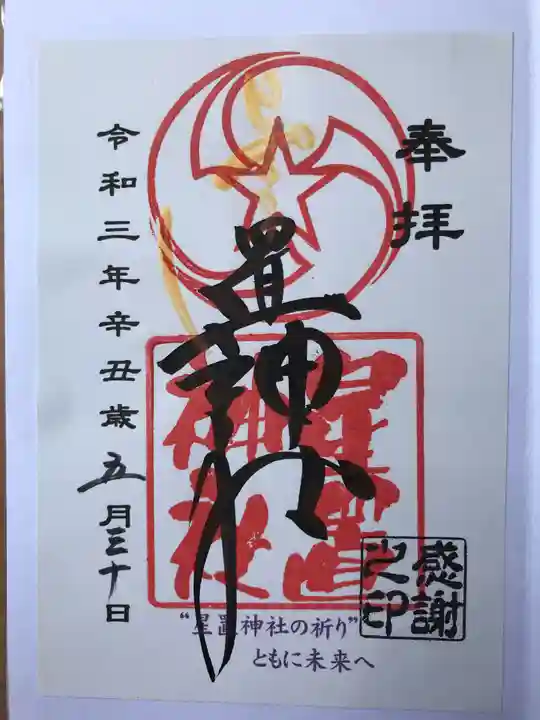 奉拝
置神社
星置神社
令和三年辛丑歳五月三十日
感謝之印
“星置神社の祈り”
ともに未来へ